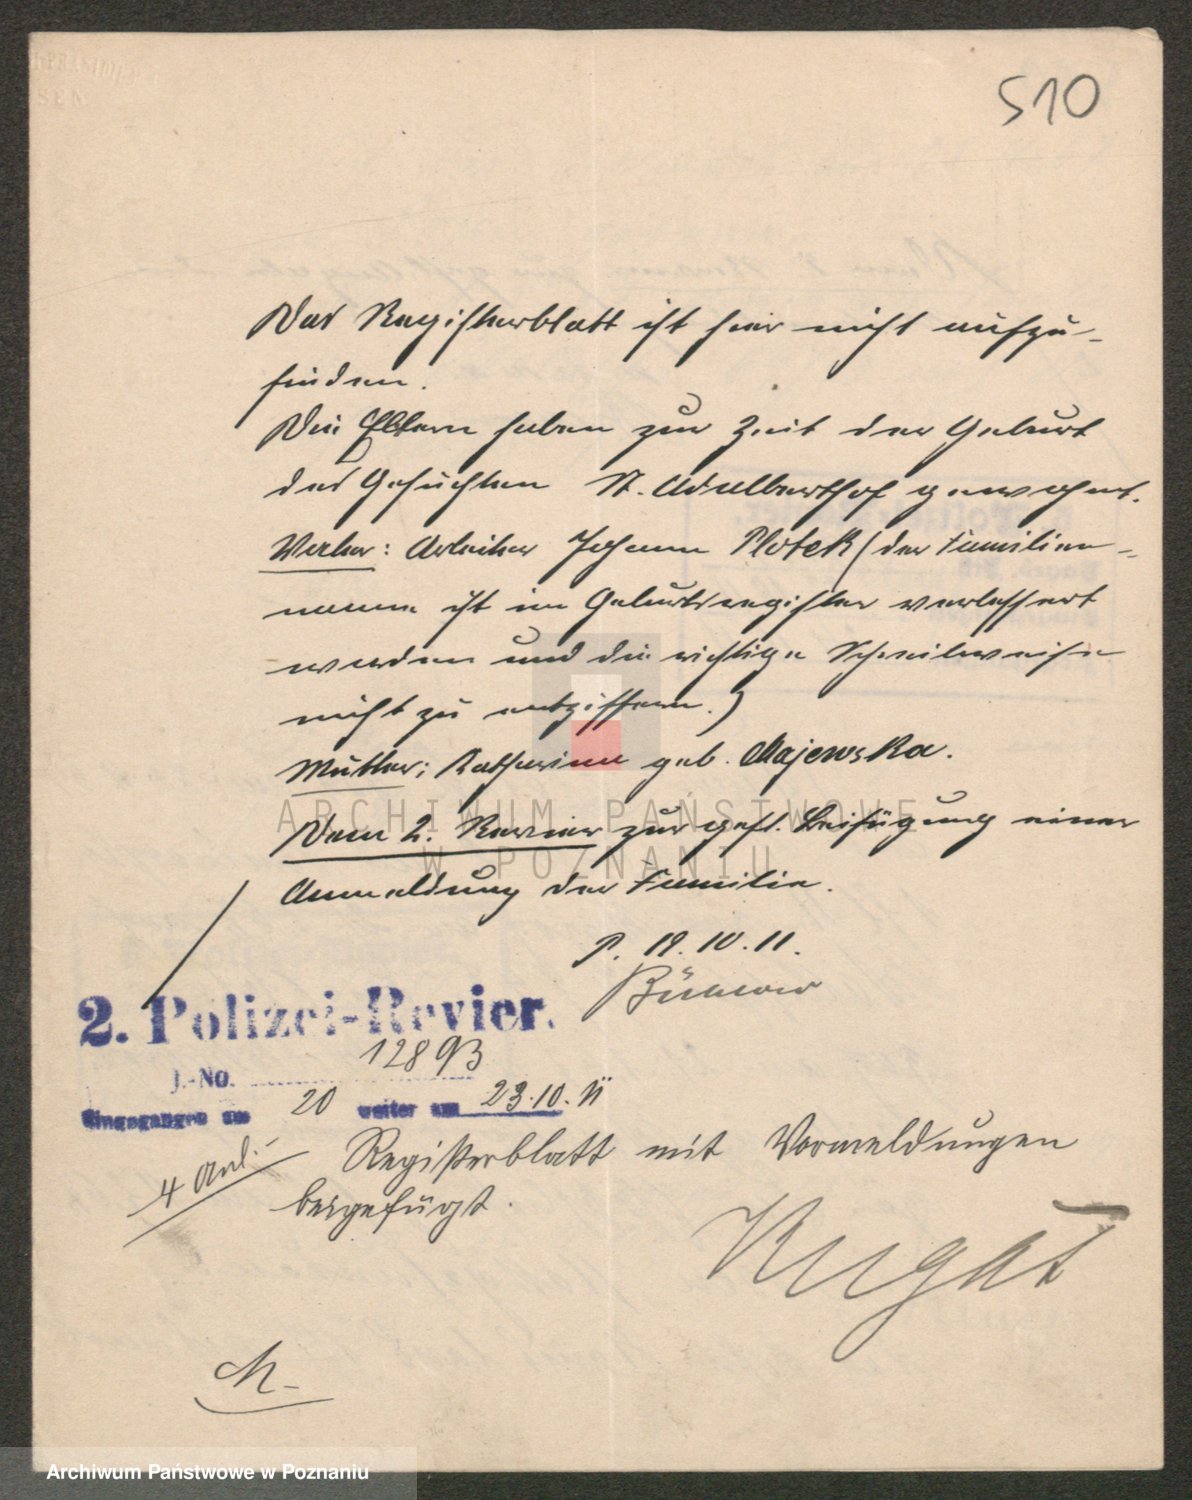 510
Das Registerblatt ist hier nicht aufzu-
finden.
Die Eltern haben zur Zeit der Geburt
des Gesuchten St. Adalberthof gewohnt.
Vater: Arbeiter Johann Plotek (der Familien-
name ist im Geburtsregister verbessert
worden und die richtige Schreibweise
nicht zu entziffern.)
Mutter: Katharina geb. Majewska.
Dem 2. Revier zur gefl. Beifügung einer
Anmeldung der Familie.
P. 19.10.11.
2. Polizei-Revier.
J.-No. 12893
Eingegangen am 20 weiter am 23.10. 11
4 Anl.
Registerblatt mit Vormeldungen
beigefügt.
Rugat
ARCHIWUM PAŃSTWOWE
W POZNANIU
Archiwum Państwowe w Poznaniu